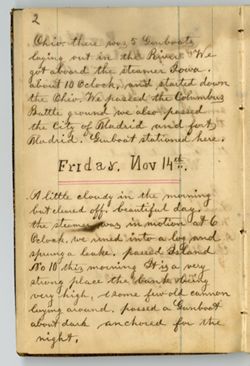 2
Ohio there was 5 Gunboats
laying out in the River We
got aboard the steamer Iowa.
about 10 Oclock, and started down
the Ohio. We passed the Columbus
Battle ground we also passed
the City of Madrid and fort
Madrid. Gunboat stationed here.
Friday. Nov 14th.
A little cloudy in the morning
but cleared off. beautiful day.
the steamer was in motion at 6
Oclock, we runed into a log and
sprung a leake. passed Island
No 10 this morning It is a very
strong place the bank being
very high, some few old cannon
laying around. passed a Gunboat
about dark anchored for the
night.